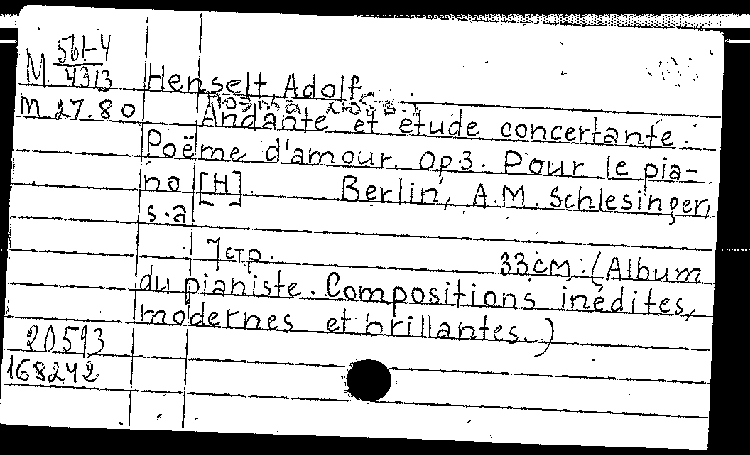 M 561-4
4313
Henselt, Adolf.
M 27.80
Andante et étude concertante.
Poëme d'amour. Op3. Pour le pia-
no [H]. Berlin, A.M. Schlesinger,
s.a
7 стр. 33 см. (Album
du pianiste. Compositions inédites,
modernes et brillantes.)
20513
168242